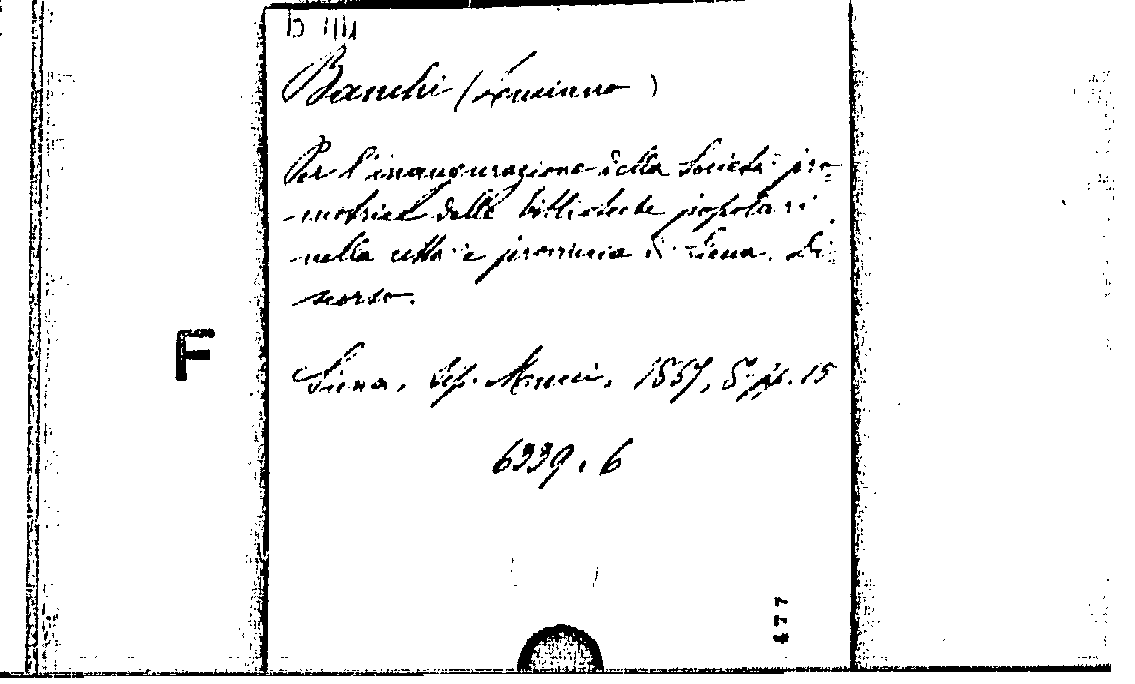 Banchi (Luciano)
Per l'inaugurazione della Società pro-
motrice delle biblioteche popolari
nella città e provincia di Siena. Di
scorso.
F
Siena, tip. Mucci, 1867, 8º pp. 15
6339.6
477